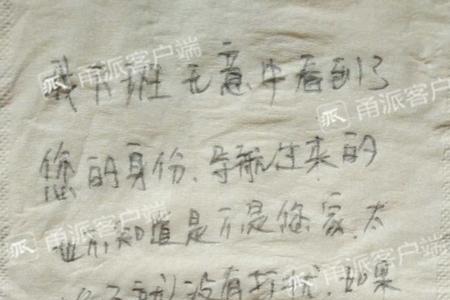 我下班无意中看到了
您的身份、导航过来的
也不知道是不是您家、太
晚了就没有打扰、如果
甬派客户端
甬派客户端
甬派客户端
甬派客户端